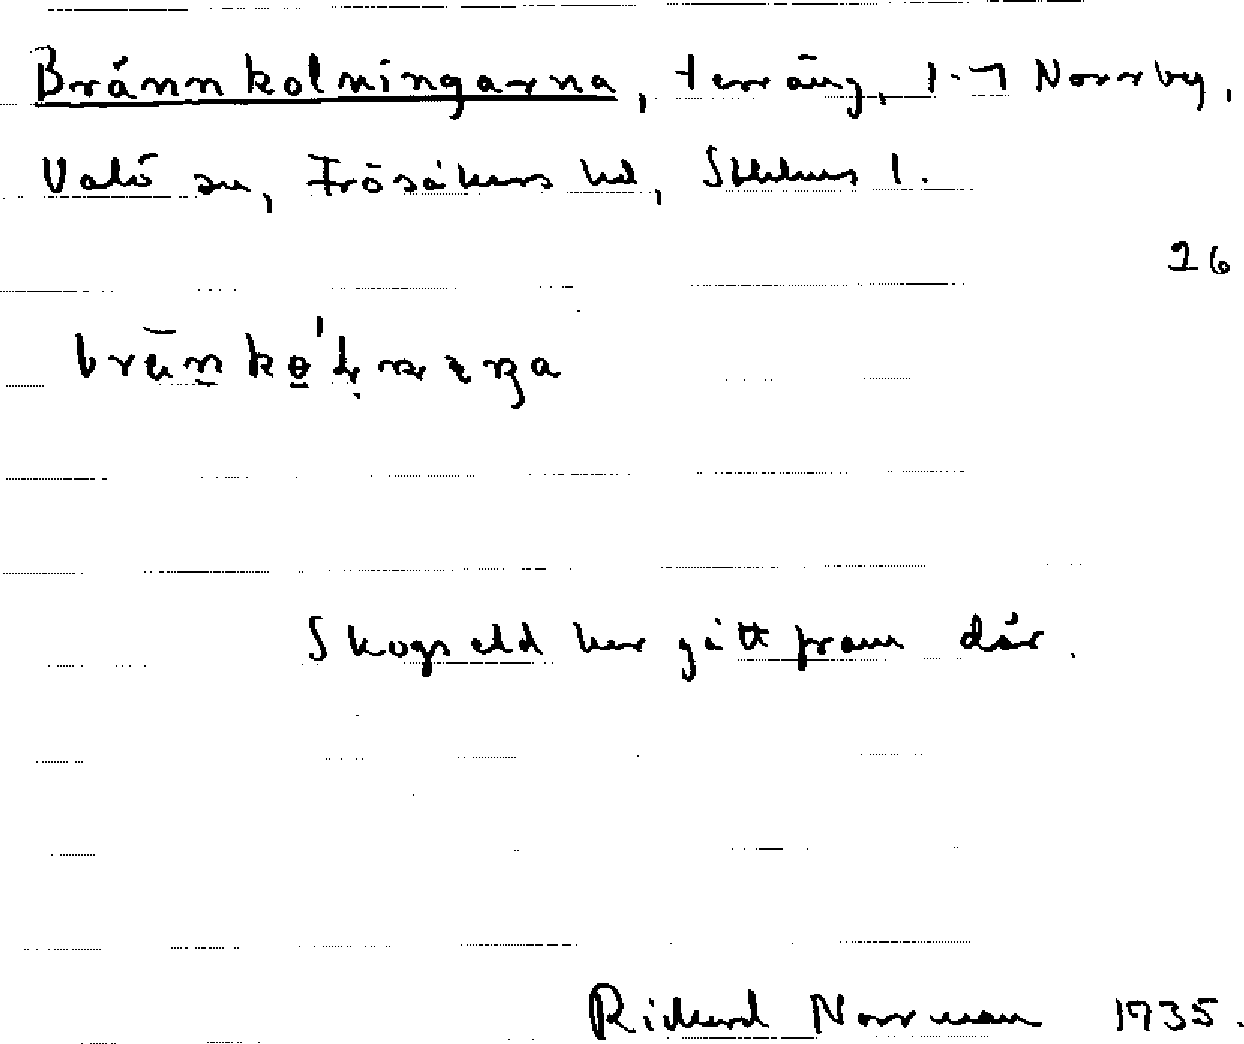 Brännkolningarna, terräng, 1-7 Norrby,
Valö sn, Frösåkers hd, Sthlms l.
26
Skogseld har gått fram där.
Rickard Norrman 1935.